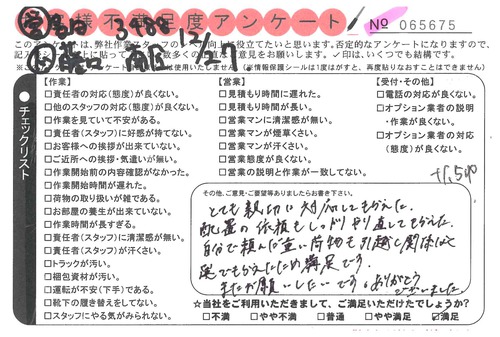 お客様不満足度アンケート
3488
12/21
№ 065675
このアンケートは、弊社作業スタッフのサービス向上に役立てたいと思います。否定的なアンケートになりますので、
✓印は、いくつでも結構です。
(※情報保護シールは1度はがすと、再度貼りなおすことはできません)
チェックリスト
【作業】
□責任者の対応(態度)が良くない。
□他のスタッフの対応(態度)が良くない。
□作業を見ていて不安がある。
□責任者(スタッフ)に好感が持てない。
□お客様への挨拶が出来ていない。
□ご近所への挨拶・気遣いが無い。
□作業開始前の内容確認がなかった。
□作業開始時間が遅れた。
□荷物の取り扱いが雑である。
□お部屋の養生が出来ていない。
□作業時間が長すぎる。
□責任者(スタッフ)に清潔感が無い。
□責任者(スタッフ)が汗くさい。
□トラックが汚い。
□梱包資材が汚い。
□運転が不安(下手)である。
□靴下の履き替えをしてない。
□スタッフにやる気がみられない。
【営業】
□見積もり時間に遅れた。
□見積もり時間が長い。
□営業マンに清潔感が無い。
□営業マンが煙草くさい。
□営業マンが汗くさい。
□営業態度が良くない。
□営業の説明と作業が一致してない。
【受付・その他】
□電話の対応が良くない。
□オプション業者の説明
・作業が良くない。
□オプション業者の対応
(態度)が良くない。
その他、ご意見・ご要望等ありましたらお書き下さい。
とても親切に対応してもらえた。
配置の依頼もしっかりやり直してもらえた。
自分で頼んだ重い荷物も引越と関係なく
運んでもらえたため満足です。
またお願いしたいです。ありがとう
ございました。
★当社をご利用いただきまして、ご満足いただけたでしょうか?
□不満 □やや不満 □普通 □やや満足 ☑満足